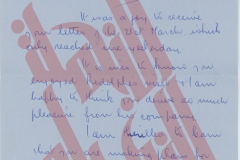 It was a joy to receive
your letter of the 21st March, which
only reached me yesterday.
It is nice to know you
enjoyed visit & I am
happy to think you derive so much
pleasure from his company.
I am to learn
that you are making plans for